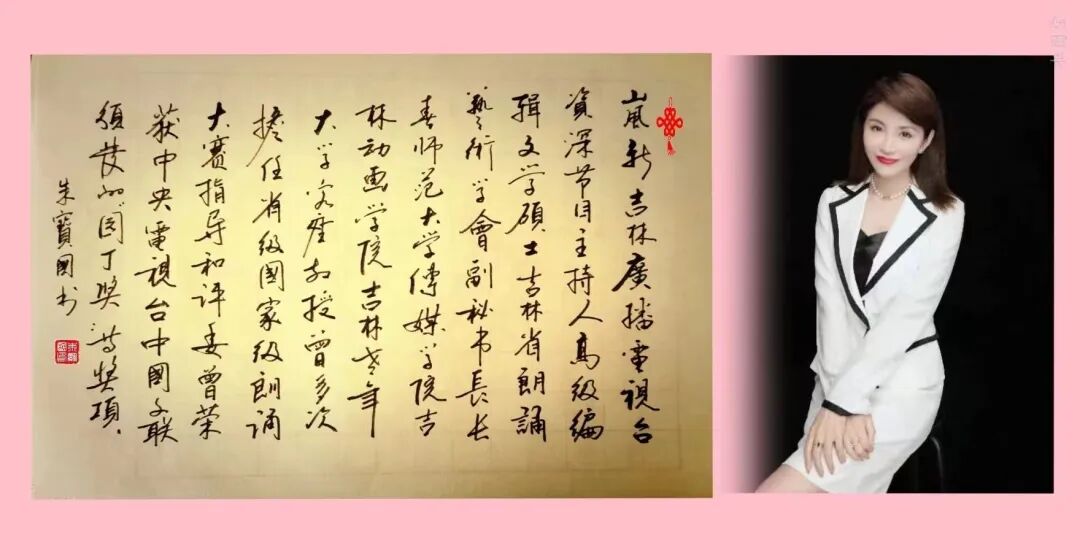 嵐新吉林廣播電視台
資深节目主持人高级编
辑文学碩士吉林省朗誦
藝術学會副秘书長长
春师范大学傅媒学院吉
林动画学院吉林老年
大学客座教授曾多次
擔任省级國家级朗诵
大赛指导和评委曾荣
获中央電視台中國文联
颁发的园丁奖等奖项.
朱寶國书